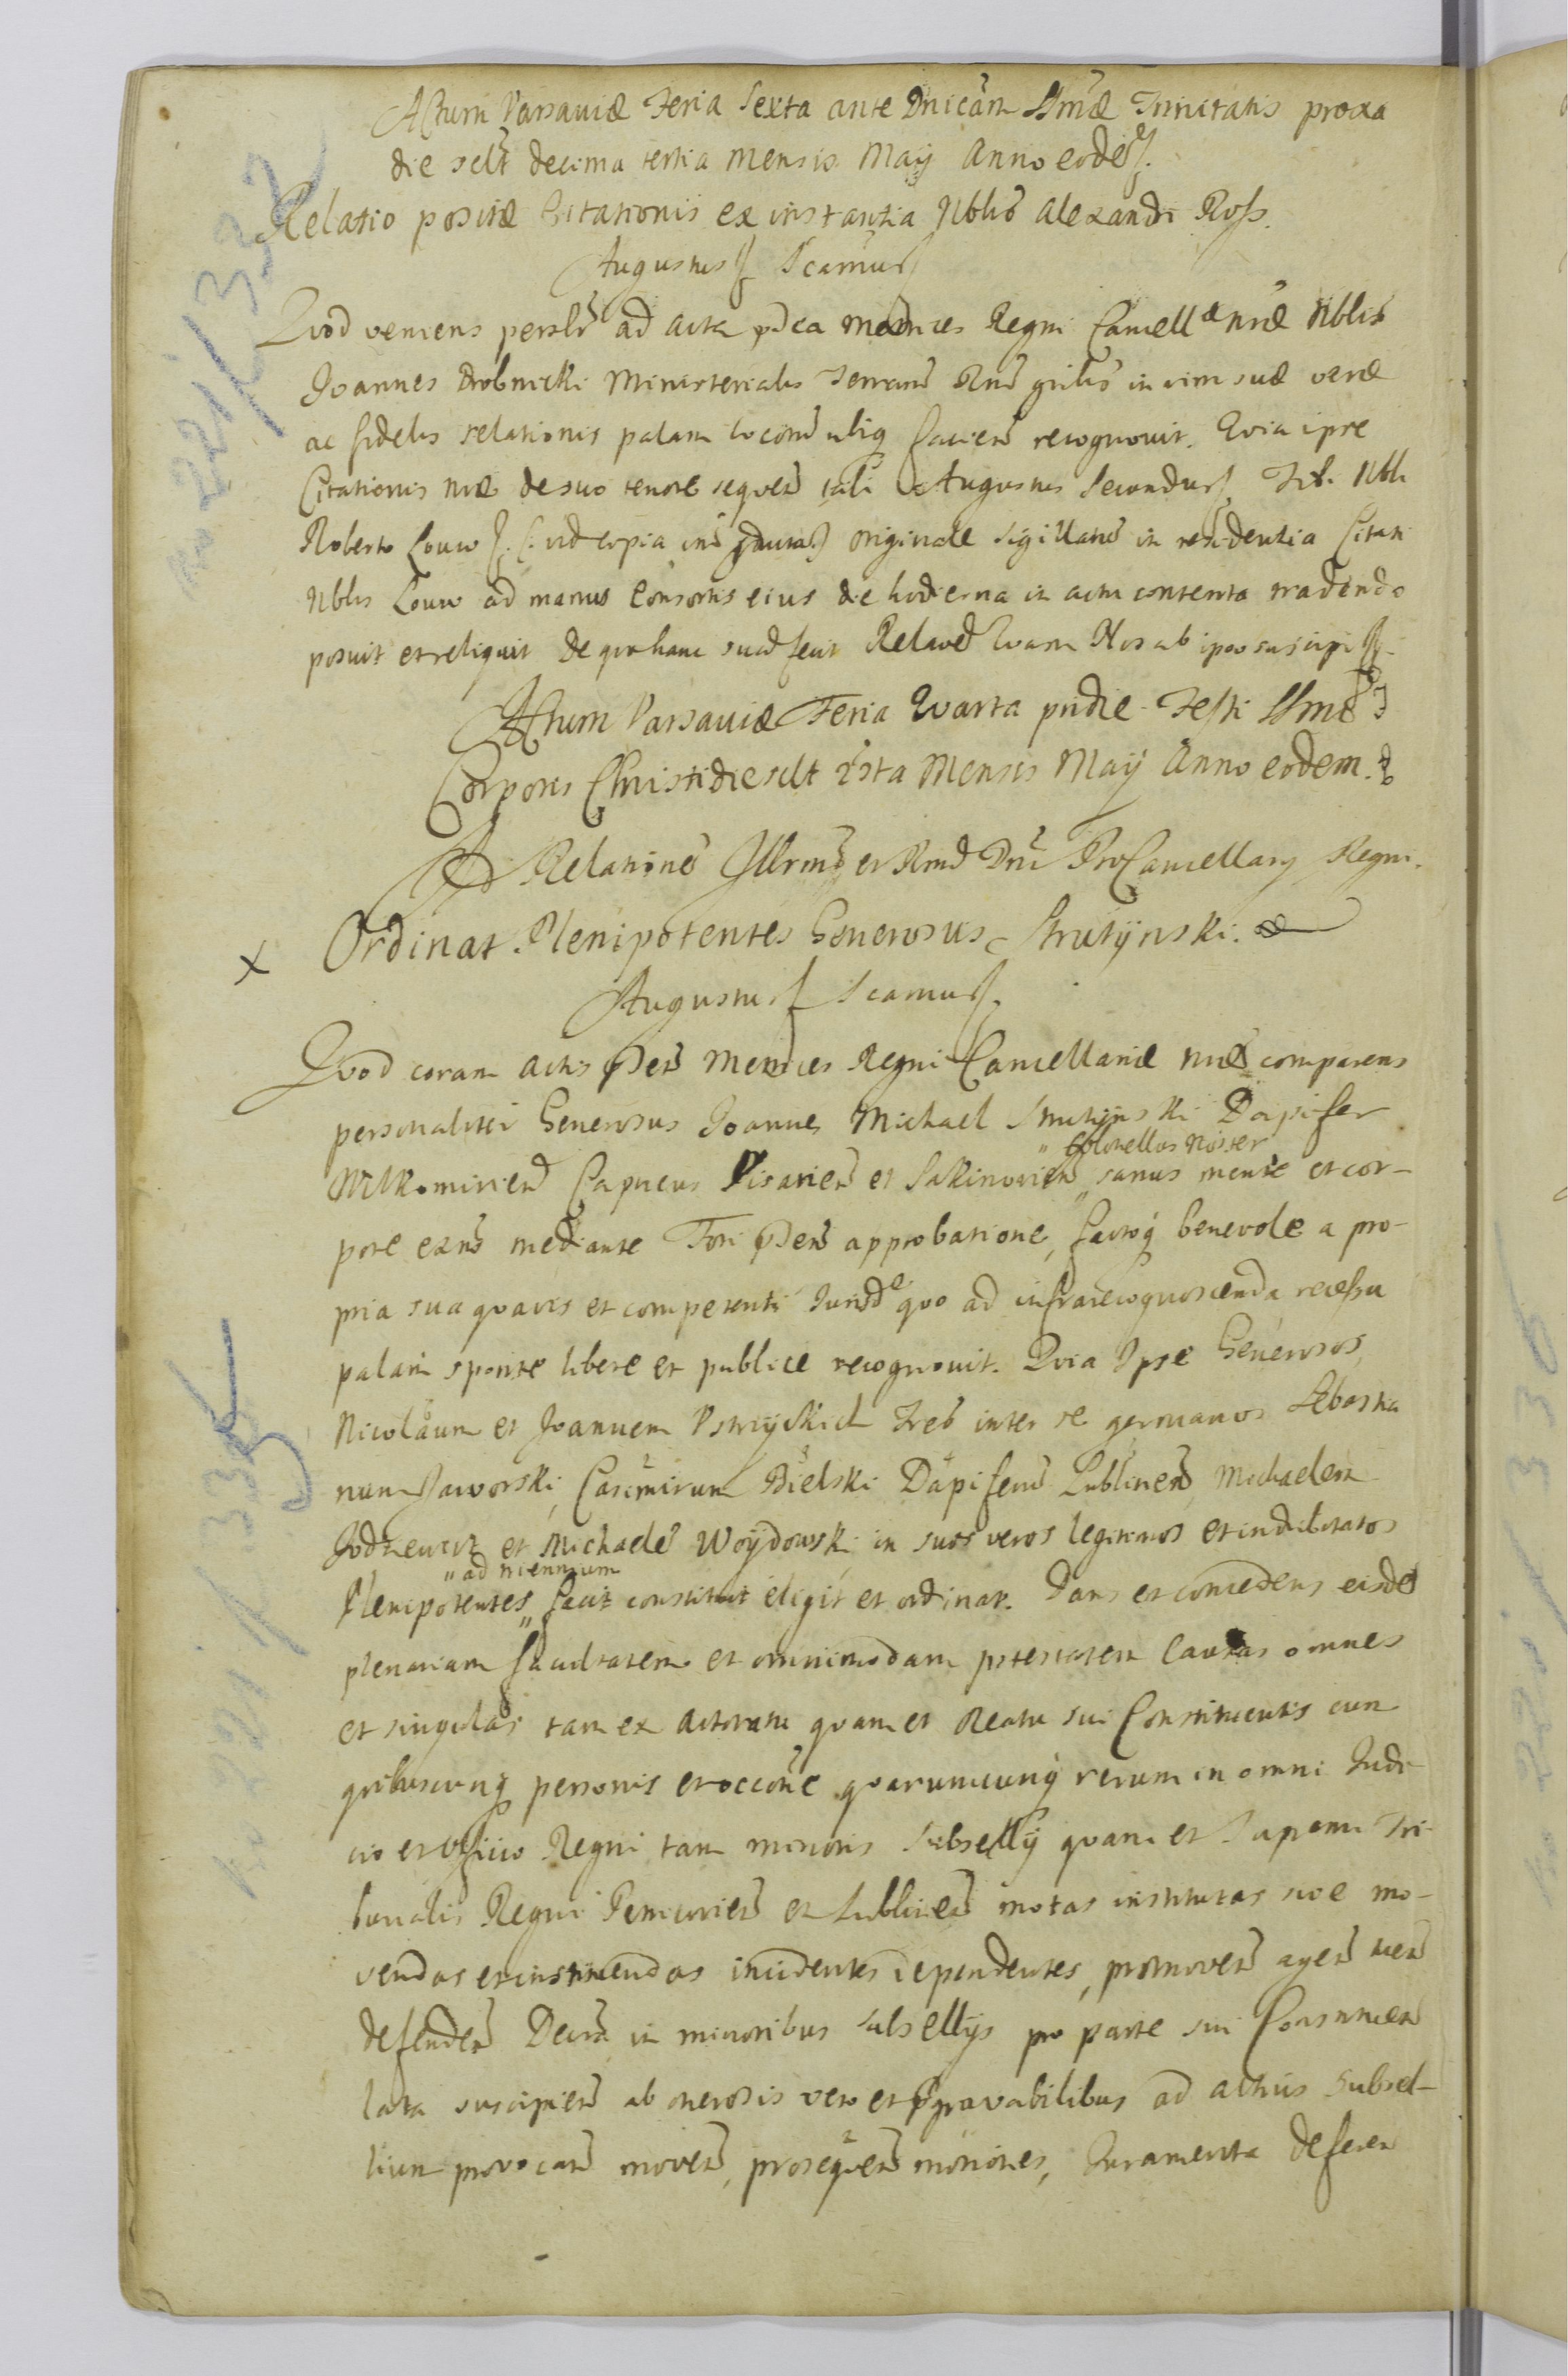 Actum Varsaviæ Feria Sexta ante Dnicam SSmæ Trinitatis proxa
die sclt decima tertia Mensis Maÿ Anno eodem
Relatio positæ Citationis ex instantia Nblis Alexandri Ross.
Augustus Scdus
Quod veniens persltr ad acta pdca Metrices Regni Cancellæ nræ Nblis
Joannes Drobnicki Ministerialis Terrarum Rni grlis in vim suæ veræ
ac fidelis relationis palam locorum ubiq facien recognovit. Quia ipse
Citationis nræ de suo tenore sequen tali Augustus Secundus Tibi Nbli
Roberto Louw originale sigillatum in residentia Citati
Nblis Louw ad manus Consortis eius die hodierna in actu contenta tradendo
posuit et reliquit de quo hanc suam fecit Relaõem Quam Nos ab ipso suscipi
Actum Varsaviæ Feria Quarta pridie Festi SSmi
Corporis Christi die sclt Mensis Maÿ Anno eodem.
Ad Relationem Illrmi et Rmi Dni ProCancellary Regni.
x Ordinat Plenipotentes Generosus Strutÿnski.
Augustus Scdus
Quod coram actis pden Metrices Regni Cancellariæ nræ comparens
personaliter Generosus Joannes Michael Strutÿnski Dapifer
" Colonellus Noster
Wilkomirien Capneus Visarien et Sakinovien " sanus mente et cor-
pore exns mediante Fori pden approbatione, factoq benevole a pro-
pria sua quavis et competenti Jurisdne quo ad infrarecognoscenda recessu
palam sponte libere et publice recognovit. Quia Ipse Generosos
Nicolaum et Joannem Ustrzÿckich Fres inter se germanos Sebastia
num Jaworski, Casimirum Bielski Dapiferum Lublinen, Michaelem
Jodzewicz et Michaelem Woÿdowski in suos veros legitimos et indubitatos
" ad triennium
Plenipotentes " facit constituit eligit et ordinat. Dans et concedens eisdem
plenariam facultatem et omnimodam potestatem Causas omnes
et singulas tam ex actoratu quam et Reatu sui Constituentis cum
quibuscunq personis et occõne quarumcunq rerum in omni Judi-
cio et Officio Regni tam minoris Subsellÿ quam et Supremi Tri-
bunalis Regni Petricovien et Lublinen motas institutas sive mo-
vendas et instituendas incidentes dependentes, promoven agen tuen
defenden Decreta in minoribus subsellÿs pro parte sui Constituen
lata suscipien ab onerosis vero et pgravabilibus ad altius Subsel-
lium provocan moven, prosequen motiones, Juramenta deferen